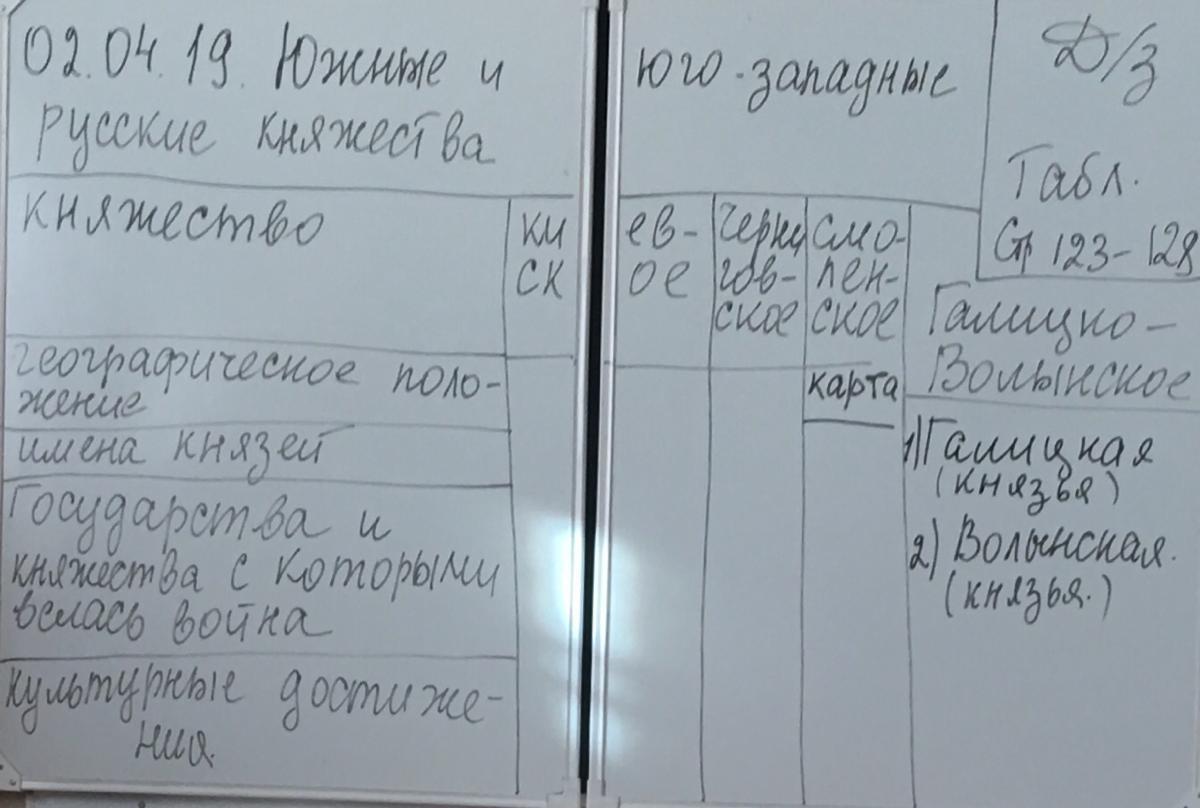 02.04.19. Южные и юго-западные
русские княжества
Д/З
Табл.
Стр 123-128
княжество
ки ев-
ск ое
черни
гов-
ское
смо-
лен-
ское
Галицко-
Волынское
географическое поло-
жение
карта
имена князей
1) Галицкая
(князья)
Государства и
княжества с которыми
велась война
2) Волынская.
(князья.)
культурные достиже-
ния.